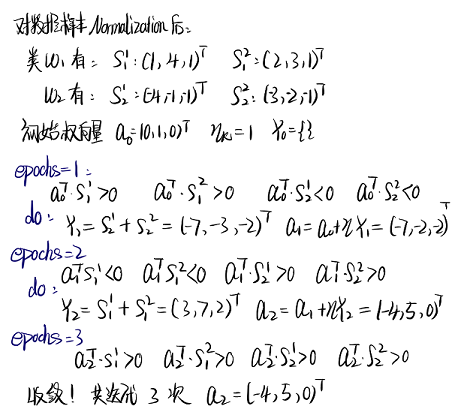 对数据样本 Normalization 后:
类 ω₁ 有: S₁¹:(1,4,1)ᵀ S₁²:(2,3,1)ᵀ
ω₂ 有: S₂¹:(-4,-1,-1)ᵀ S₂²:(-3,-2,-1)ᵀ
初始权向量 a₀=(0,1,0)ᵀ ηₖ=1 Y₀={}
epochs=1:
a₀ᵀ·S₁¹>0 a₀ᵀ·S₁²>0 a₀ᵀ·S₂¹<0 a₀ᵀ·S₂²<0
do: Y₁=S₂¹+S₂²=(-7,-3,-2)ᵀ a₁=a₀+ηY₁=(-7,-2,-2)ᵀ
epochs=2
a₁ᵀS₁¹<0 a₁ᵀS₁²<0 a₁ᵀ·S₂¹>0 a₁ᵀ·S₂²>0
do:
Y₂=S₁¹+S₁²=(3,7,2)ᵀ a₂=a₁+ηY₂=(-4,5,0)ᵀ
epochs=3
a₂ᵀ·S₁¹>0 a₂ᵀ·S₁²>0 a₂ᵀ·S₂¹>0 a₂ᵀ·S₂²>0
收敛! 共迭代 3 次 a₂=(-4,5,0)ᵀ